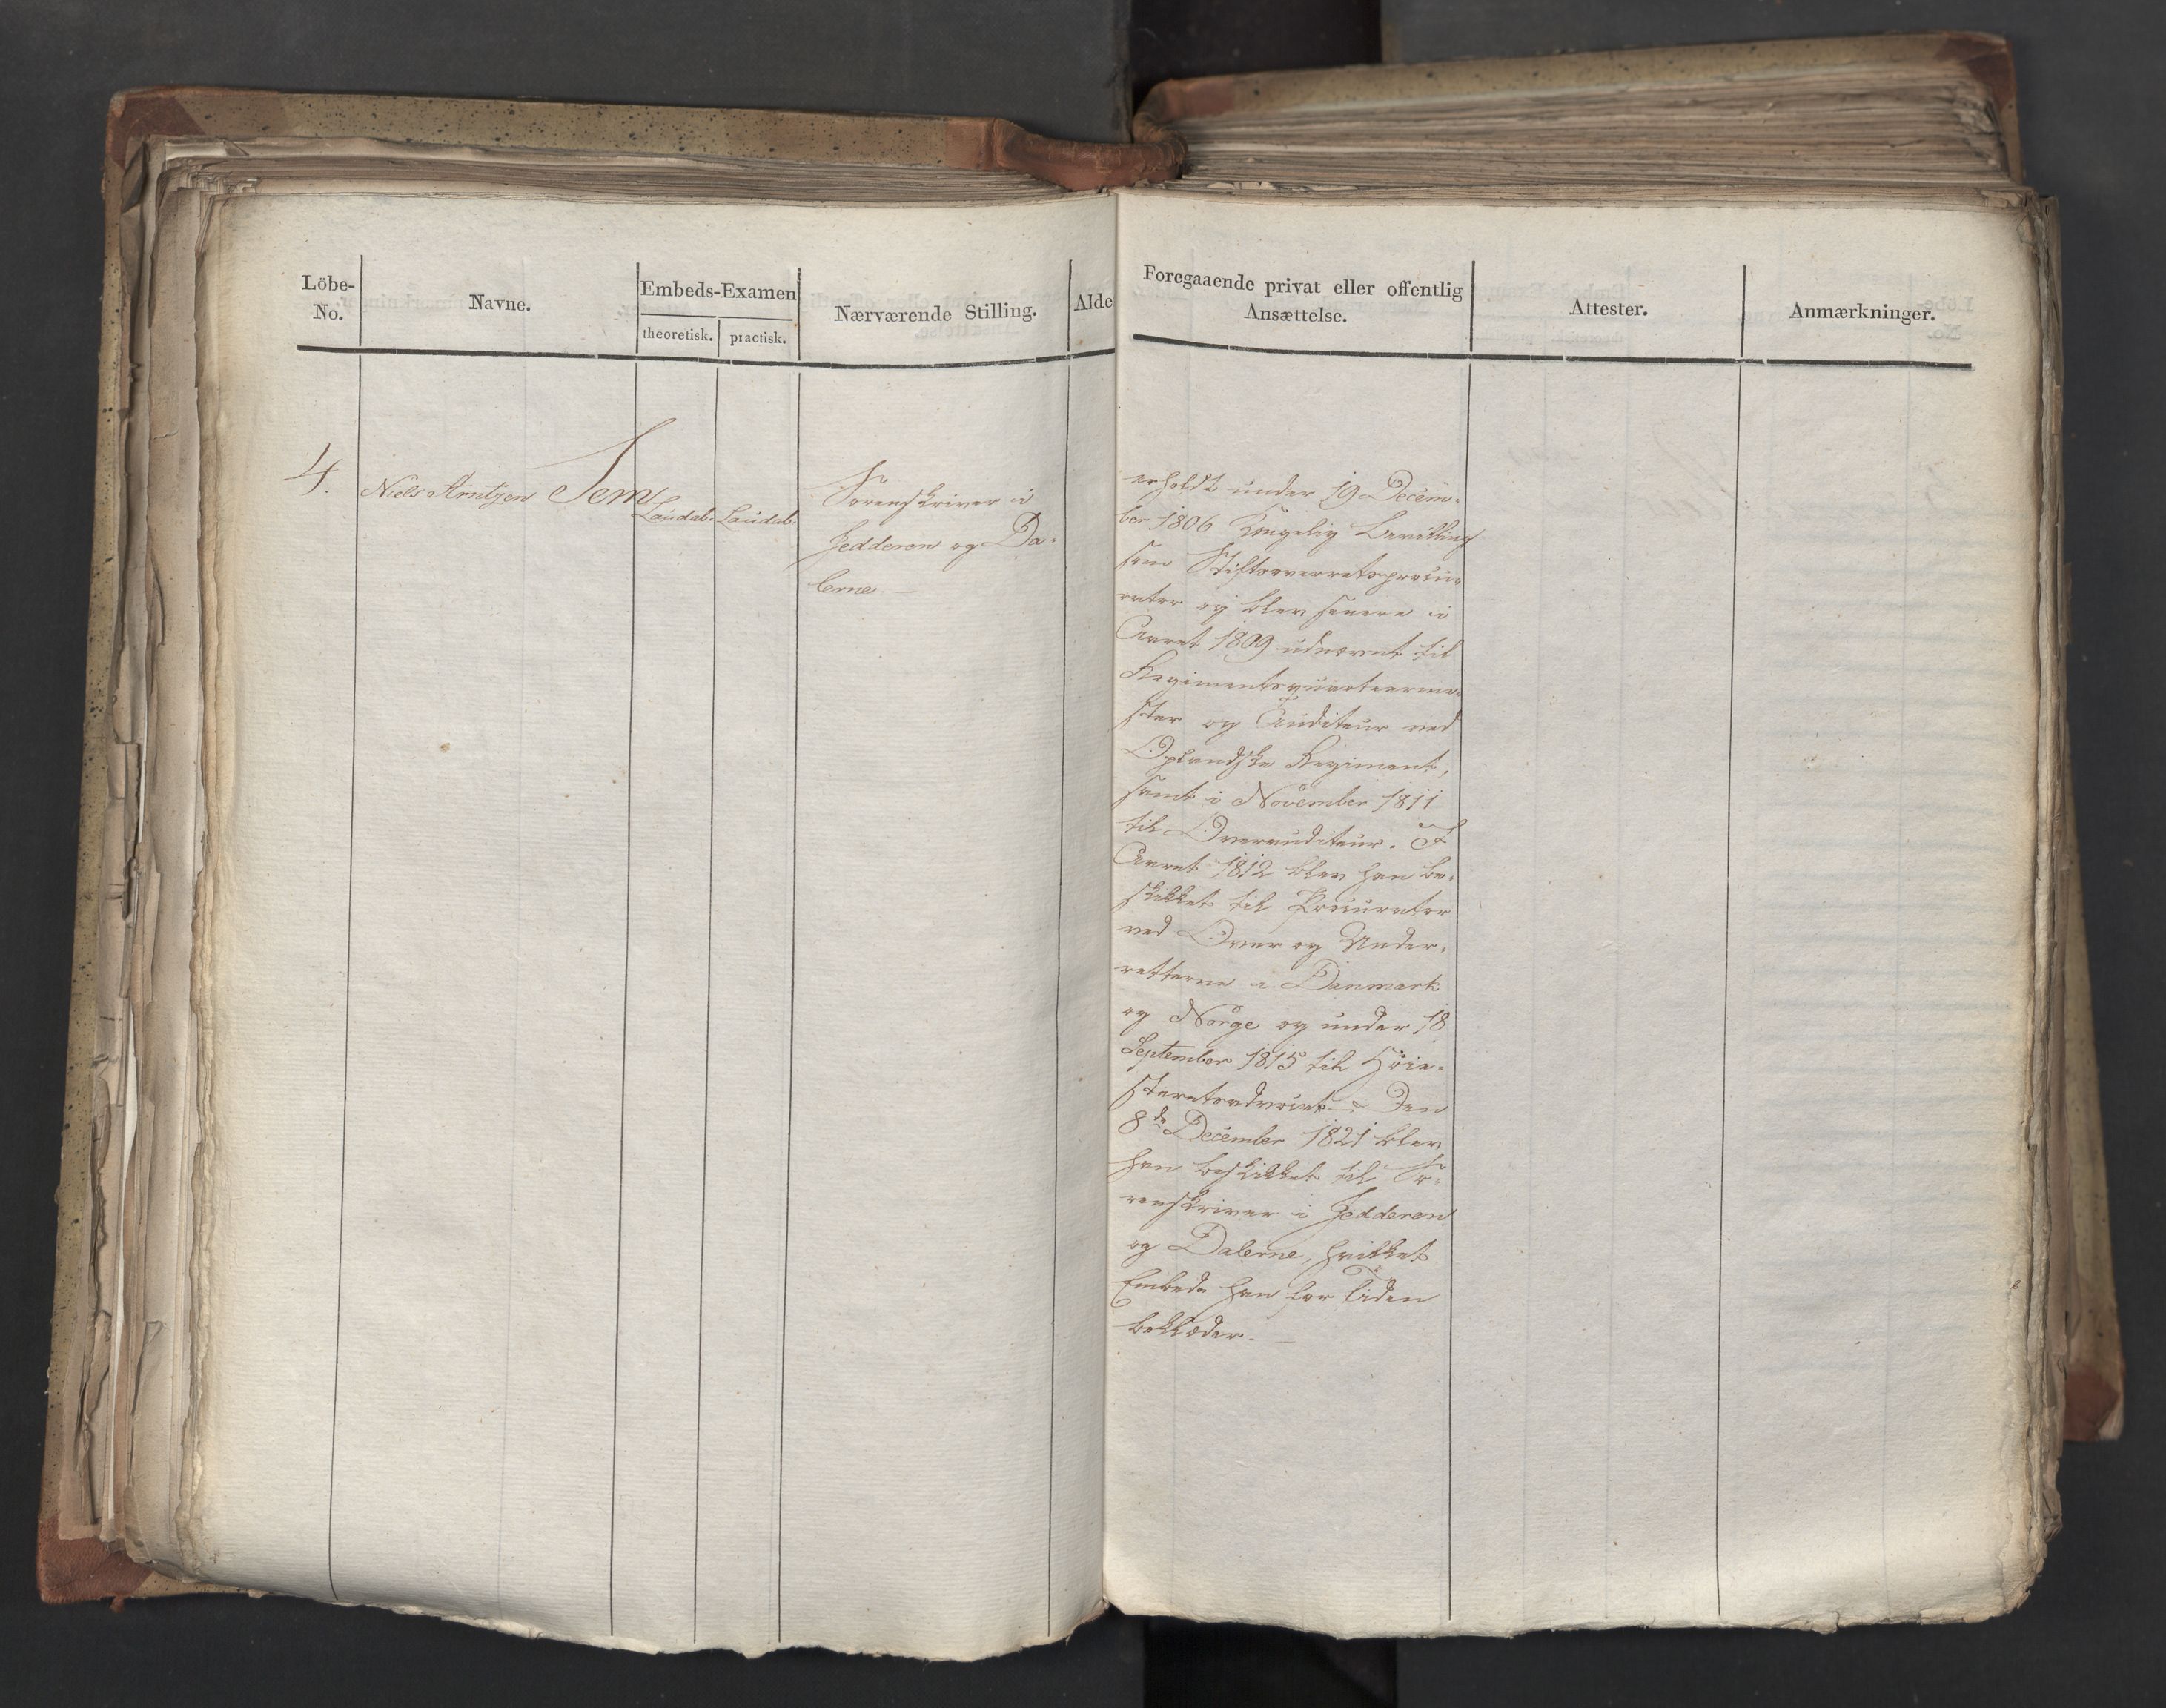 Löbe-
No.
Navne.
Embeds-Examen
theoretisk. practisk.
Nærværende Stilling.
Alde
Foregaaende privat eller offentlig
Ansættelse.
Attester.
Anmærkninger.
4. Niels Arntzen Sem
Laudab. Laudab.
Sorenskriver i
Jedderen og Da-
lerne
erholdt under 19 Decem-
ber 1806 Kongelig Bevilling
som Stiftsoverretsprocu-
rator og blev senere i
Aaret 1809 udnævnt til
Regimentsquarteerme-
ster og Auditeur ved
Oplandske Regiment,
samt i November 1811
til Overauditeur. I
Aaret 1812 blev han be-
skikket til Procurator
ved Over og Under-
retterne i Danmark
og Norge og under 18
September 1815 til Höie-
steretsadvocat. Den
8de December 1821 blev
han beskikket til So-
renskriver i Jedderen
og Dalerne, hvilket
Embede han for Tiden
beklæder.